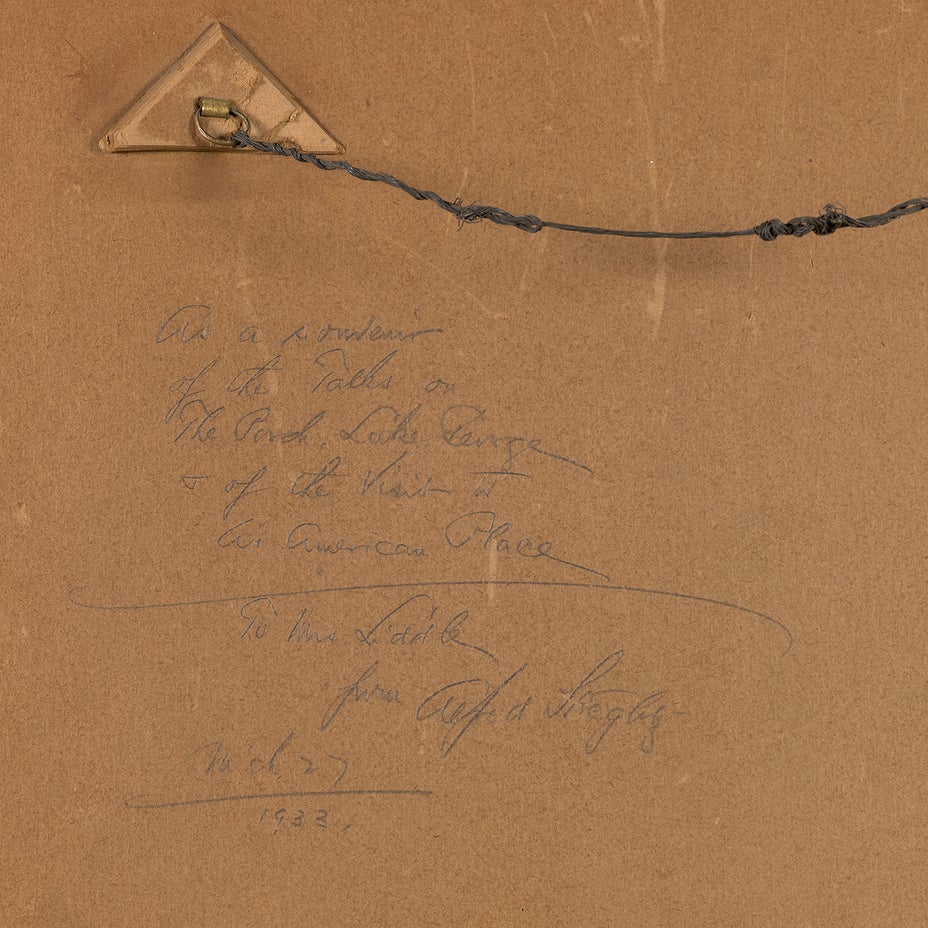 As a souvenir
of the Talks on
The Porch, Lake George
& of the Visit to
An American Place
To Mrs. Liddle
from Alfred Stieglitz
Mch 27
1933.